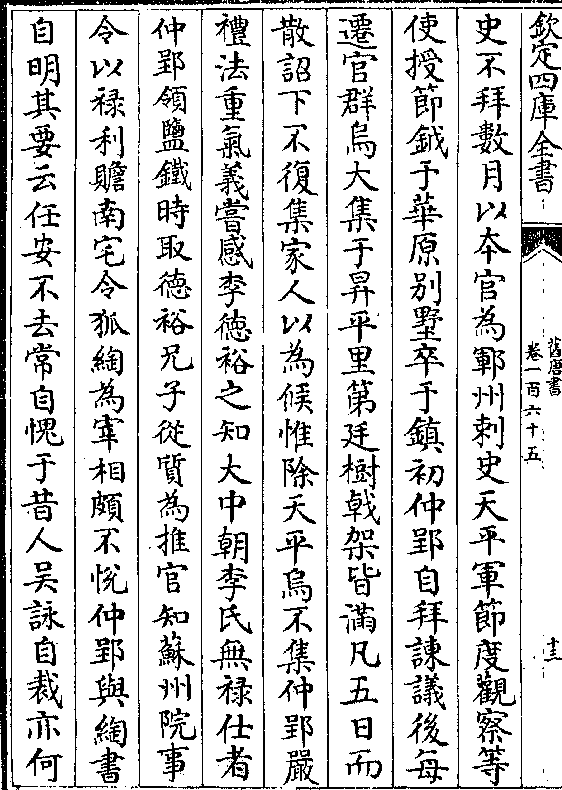 欽定四庫全書
舊唐書
卷一百六十五
十三
史不拜數月以本官為鄆州刺史天平軍節度觀察等
使授節鉞于華原別墅卒于鎮初仲郢自拜諫議後每
遷官群烏大集于昇平里第廷樹戟架皆滿凡五日而
散詔下不復集家人以為候惟除天平烏不集仲郢嚴
禮法重氣義嘗感李德裕之知大中朝李氏無禄仕者
仲郢領鹽鐵時取德裕兄子從質為推官知蘇州院事
令以禄利贍南宅令狐綯為宰相頗不悅仲郢與綯書
自明其要云任安不去常自愧于昔人吴詠自裁亦何